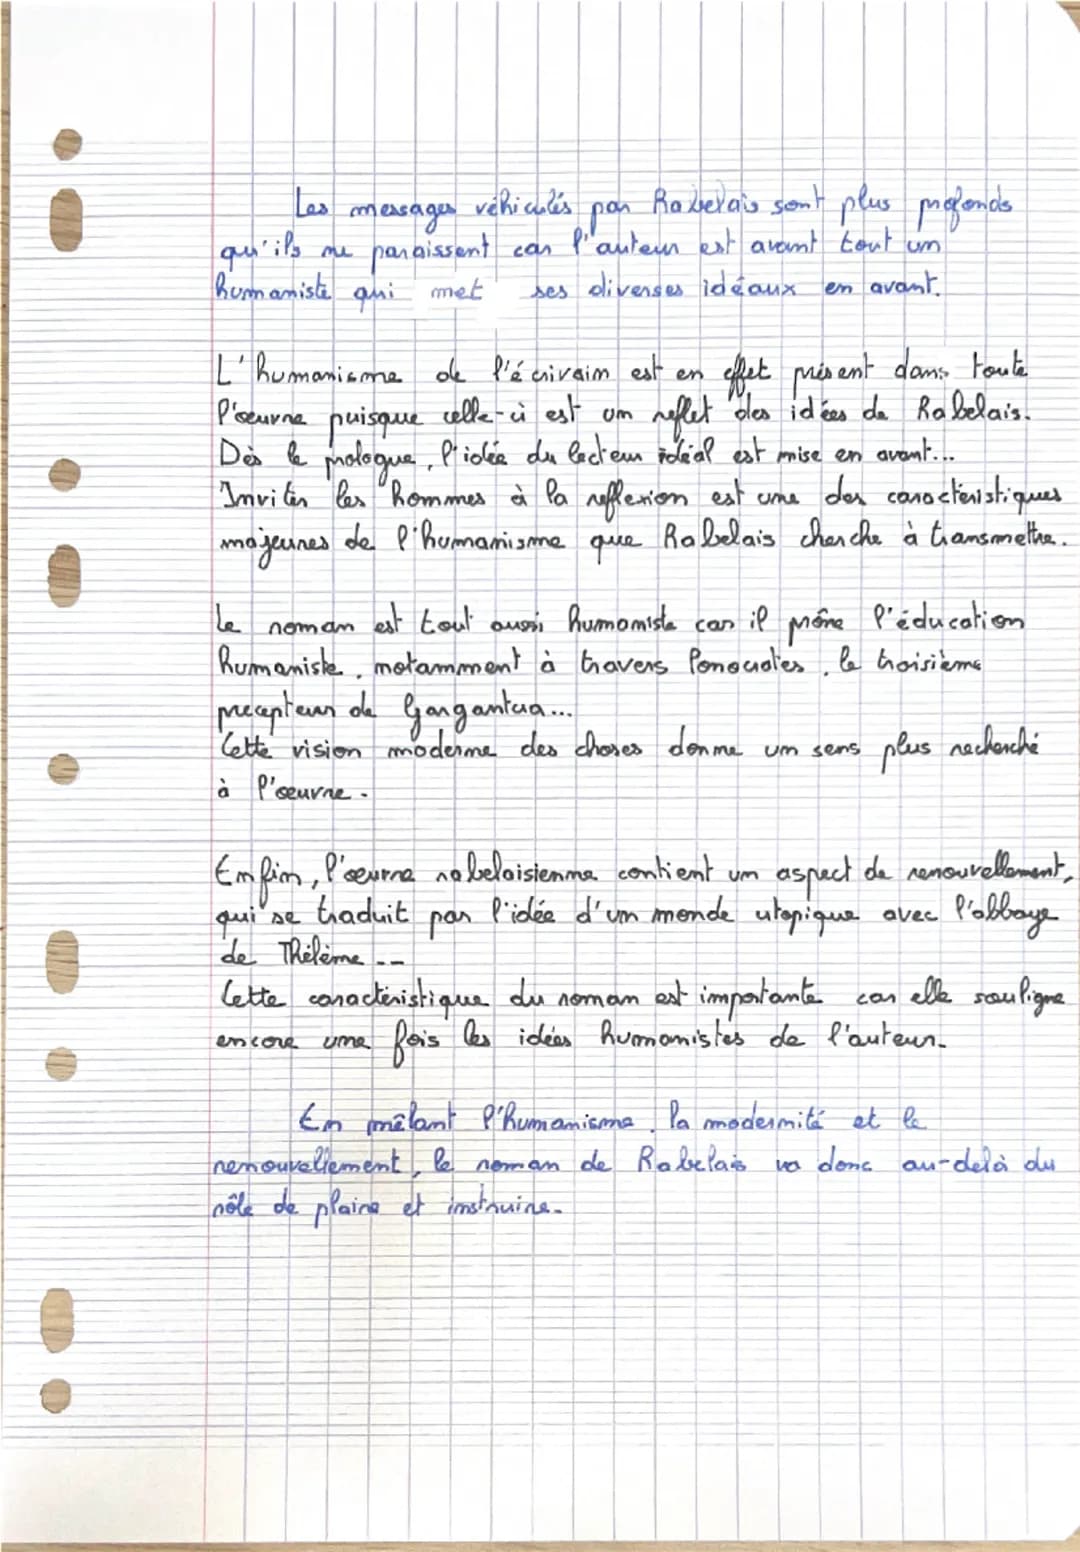 Les messages véhiculés par Rabelais sont plus profonds
qu'ils ne paraissent car l'auteur est avant tout un
humaniste qui met ses diverses idéaux en avant.
L'humanisme de l'écrivain est en effet présent dans toute
l'oeuvre puisque celle-ci est un reflet des idées de Rabelais.
Dès le prologue, l'idée du lecteur idéal est mise en avant...
Inviter les hommes à la reflexion est une des caractéristiques
majeures de l'humanisme que Rabelais cherche à transmettre.
Le roman est tout aussi humaniste car il prône l'éducation
humaniste, notamment à travers Ponocrates, le troisième
precepteur de Gargantua...
Cette vision moderne des choses donne un sens plus recherché
à l'oeuvre.
Enfin, l'oeuvre rabelaisienne contient un aspect de renouvellement,
qui se traduit par l'idée d'un monde utopique avec l'abbaye
de Thélème ...
Cette caractéristique du roman est importante car elle souligne
encore une fois les idées humanistes de l'auteur.
En mêlant l'humanisme, la modernité et le
renouvellement, le roman de Rabelais va donc au-delà du
rôle de plaire et instruire.